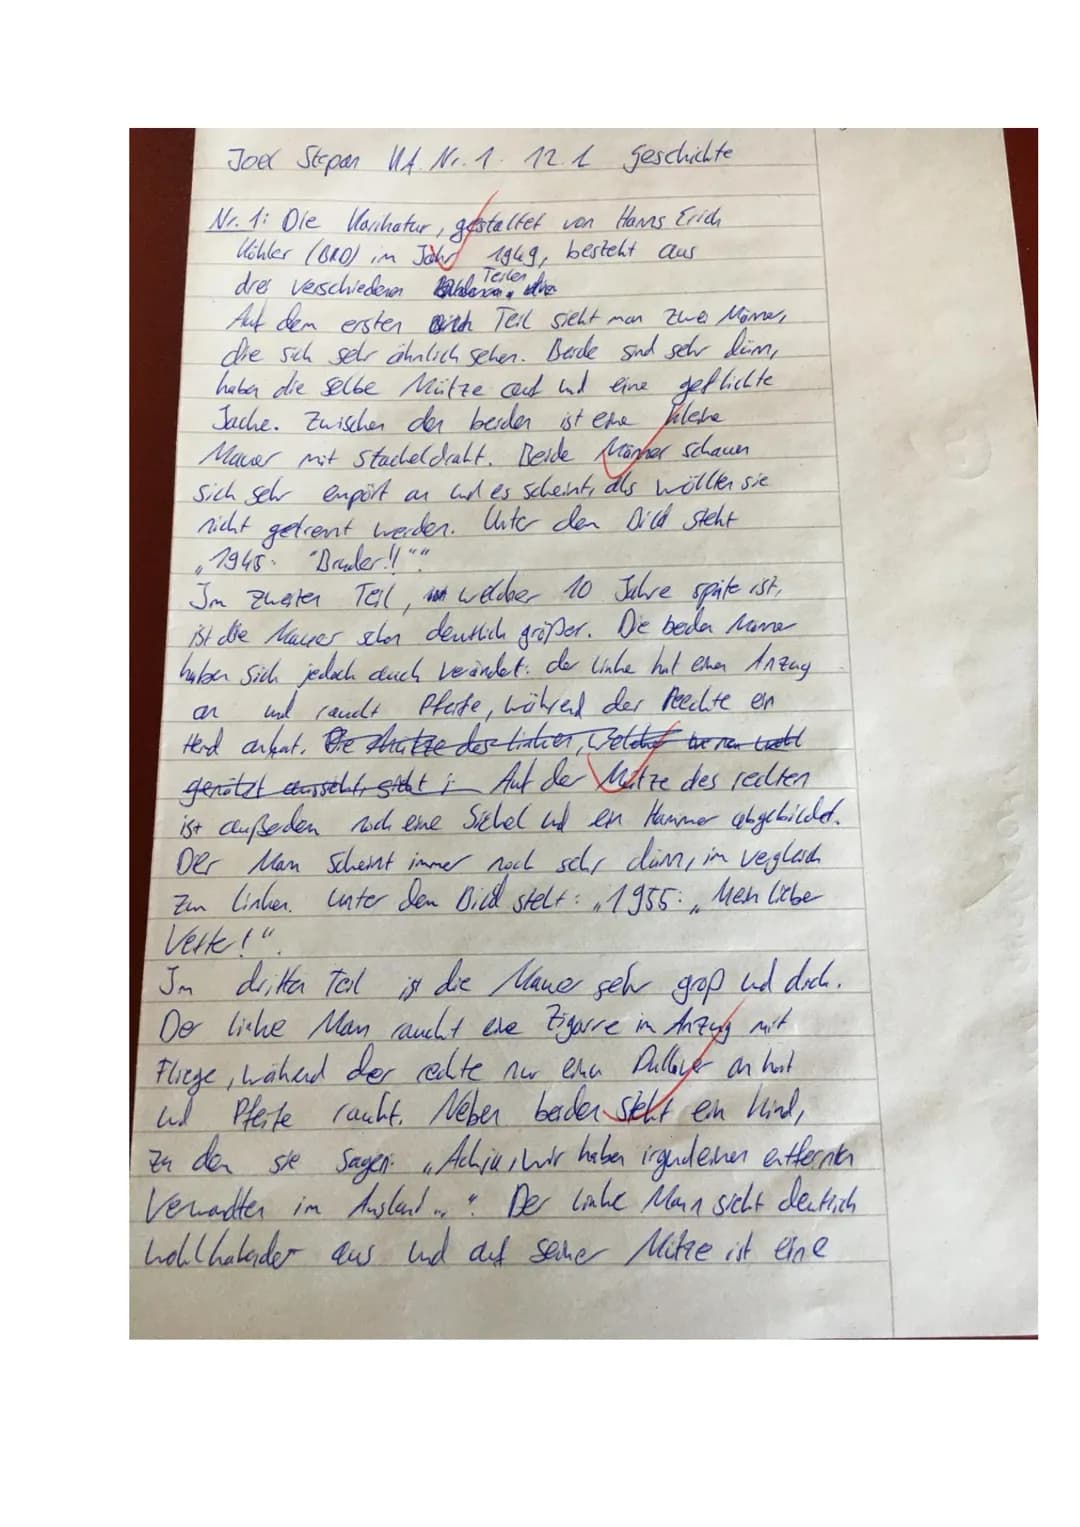 Joel Stepan KA. Nr. 1. 12.1 Geschichte
Nr. 1: Die Karikatur, gestaltet von Hanns Erich
Köhler (BRD) im Jahr 1949, besteht aus
drei verschiedenen Teilen.
Auf dem ersten Teil sieht man zwei Männer,
die sich sehr ähnlich sehen. Beide sind sehr dünn,
haben die selbe Mütze auf und eine geflickte
Jacke. Zwischen den beiden ist eine kleine
Mauer mit Stacheldraht. Beide Männer schauen
sich sehr empört an und es scheint, als wollten sie
nicht getrennt werden. Unter dem Bild steht
„1945: "Bruder!!"“
Im zweiten Teil, welcher 10 Jahre später ist,
ist die Mauer schon deutlich größer. Die beiden Männer
haben sich jedoch auch verändert: der linke hat einen Anzug
an und raucht Pfeife, während der Rechte ein
Hemd anhat. Die Mütze des linken, welche
genäht aussieht, Auf der Mütze des rechten
ist außerdem noch eine Sichel und ein Hammer abgebildet.
Der Mann scheint immer noch sehr dünn, im vergleich
zum linken. Unter dem Bild steht: „1955: „Mein lieber
Vetter!“.
Im dritten Teil ist die Mauer sehr groß und dick.
Der linke Mann raucht eine Zigarre im Anzug mit
Fliege, während der rechte nur einen Pullover an hat
und Pfeife raucht. Neben beiden steht ein Kind,
zu dem sie sagen: „Ach ja, wir haben irgendeinen entfernten
Verwandten im Ausland...“. Der linke Mann sieht deutlich
wohlhabender aus und auf seiner Mütze ist eine